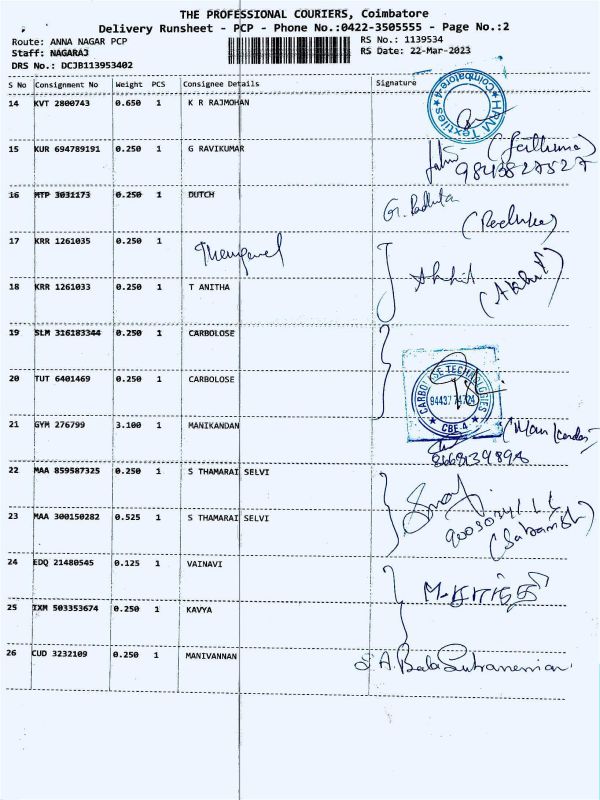 THE PROFESSIONAL COURIERS, Coimbatore
Delivery Runsheet - PCP - Phone No.:0422-3505555 - Page No.:2
Route: ANNA NAGAR PCP RS No.: 1139534
Staff: NAGARAJ RS Date: 22-Mar-2023
DRS No.: DCJB113953402
S No Consignment No Weight PCS Consignee Details Signature
14 KVT 2800743 0.650 1 K R RAJMOHAN
HRM Textiles Coimbatore-4
15 KUR 694789191 0.250 1 G RAVIKUMAR
9843827527
16 MTP 3031173 0.250 1 DUTCH
17 KRR 1261035 0.250 1
18 KRR 1261033 0.250 1 T ANITHA
19 SLM 316183344 0.250 1 CARBOLOSE
20 TUT 6401469 0.250 1 CARBOLOSE
CARBOLOSE TECHNOLOGIES
CBE.4
21 GYM 276799 3.100 1 MANIKANDAN
22 MAA 859587325 0.250 1 S THAMARAI SELVI
23 MAA 300150282 0.525 1 S THAMARAI SELVI
24 EDQ 21480545 0.125 1 VAINAVI
25 IXM 503353674 0.250 1 KAVYA
26 CUD 3232109 0.250 1 MANIVANNAN